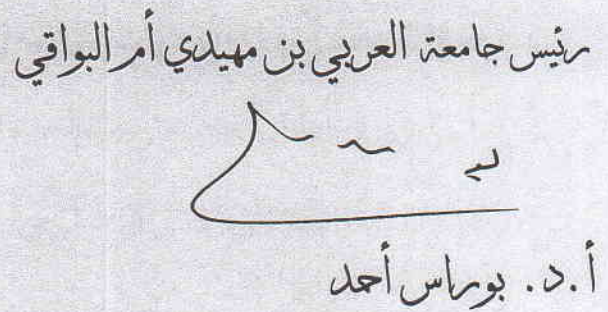 رئيس جامعة العربي بن مهيدي أم البواقي
أ.د. بوراس أحمد